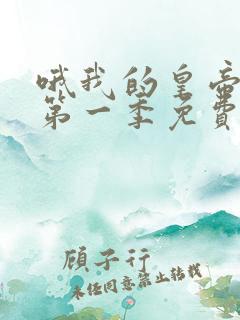 哦我的皇帝
第一季免費
顾子行
未经同意禁止转载